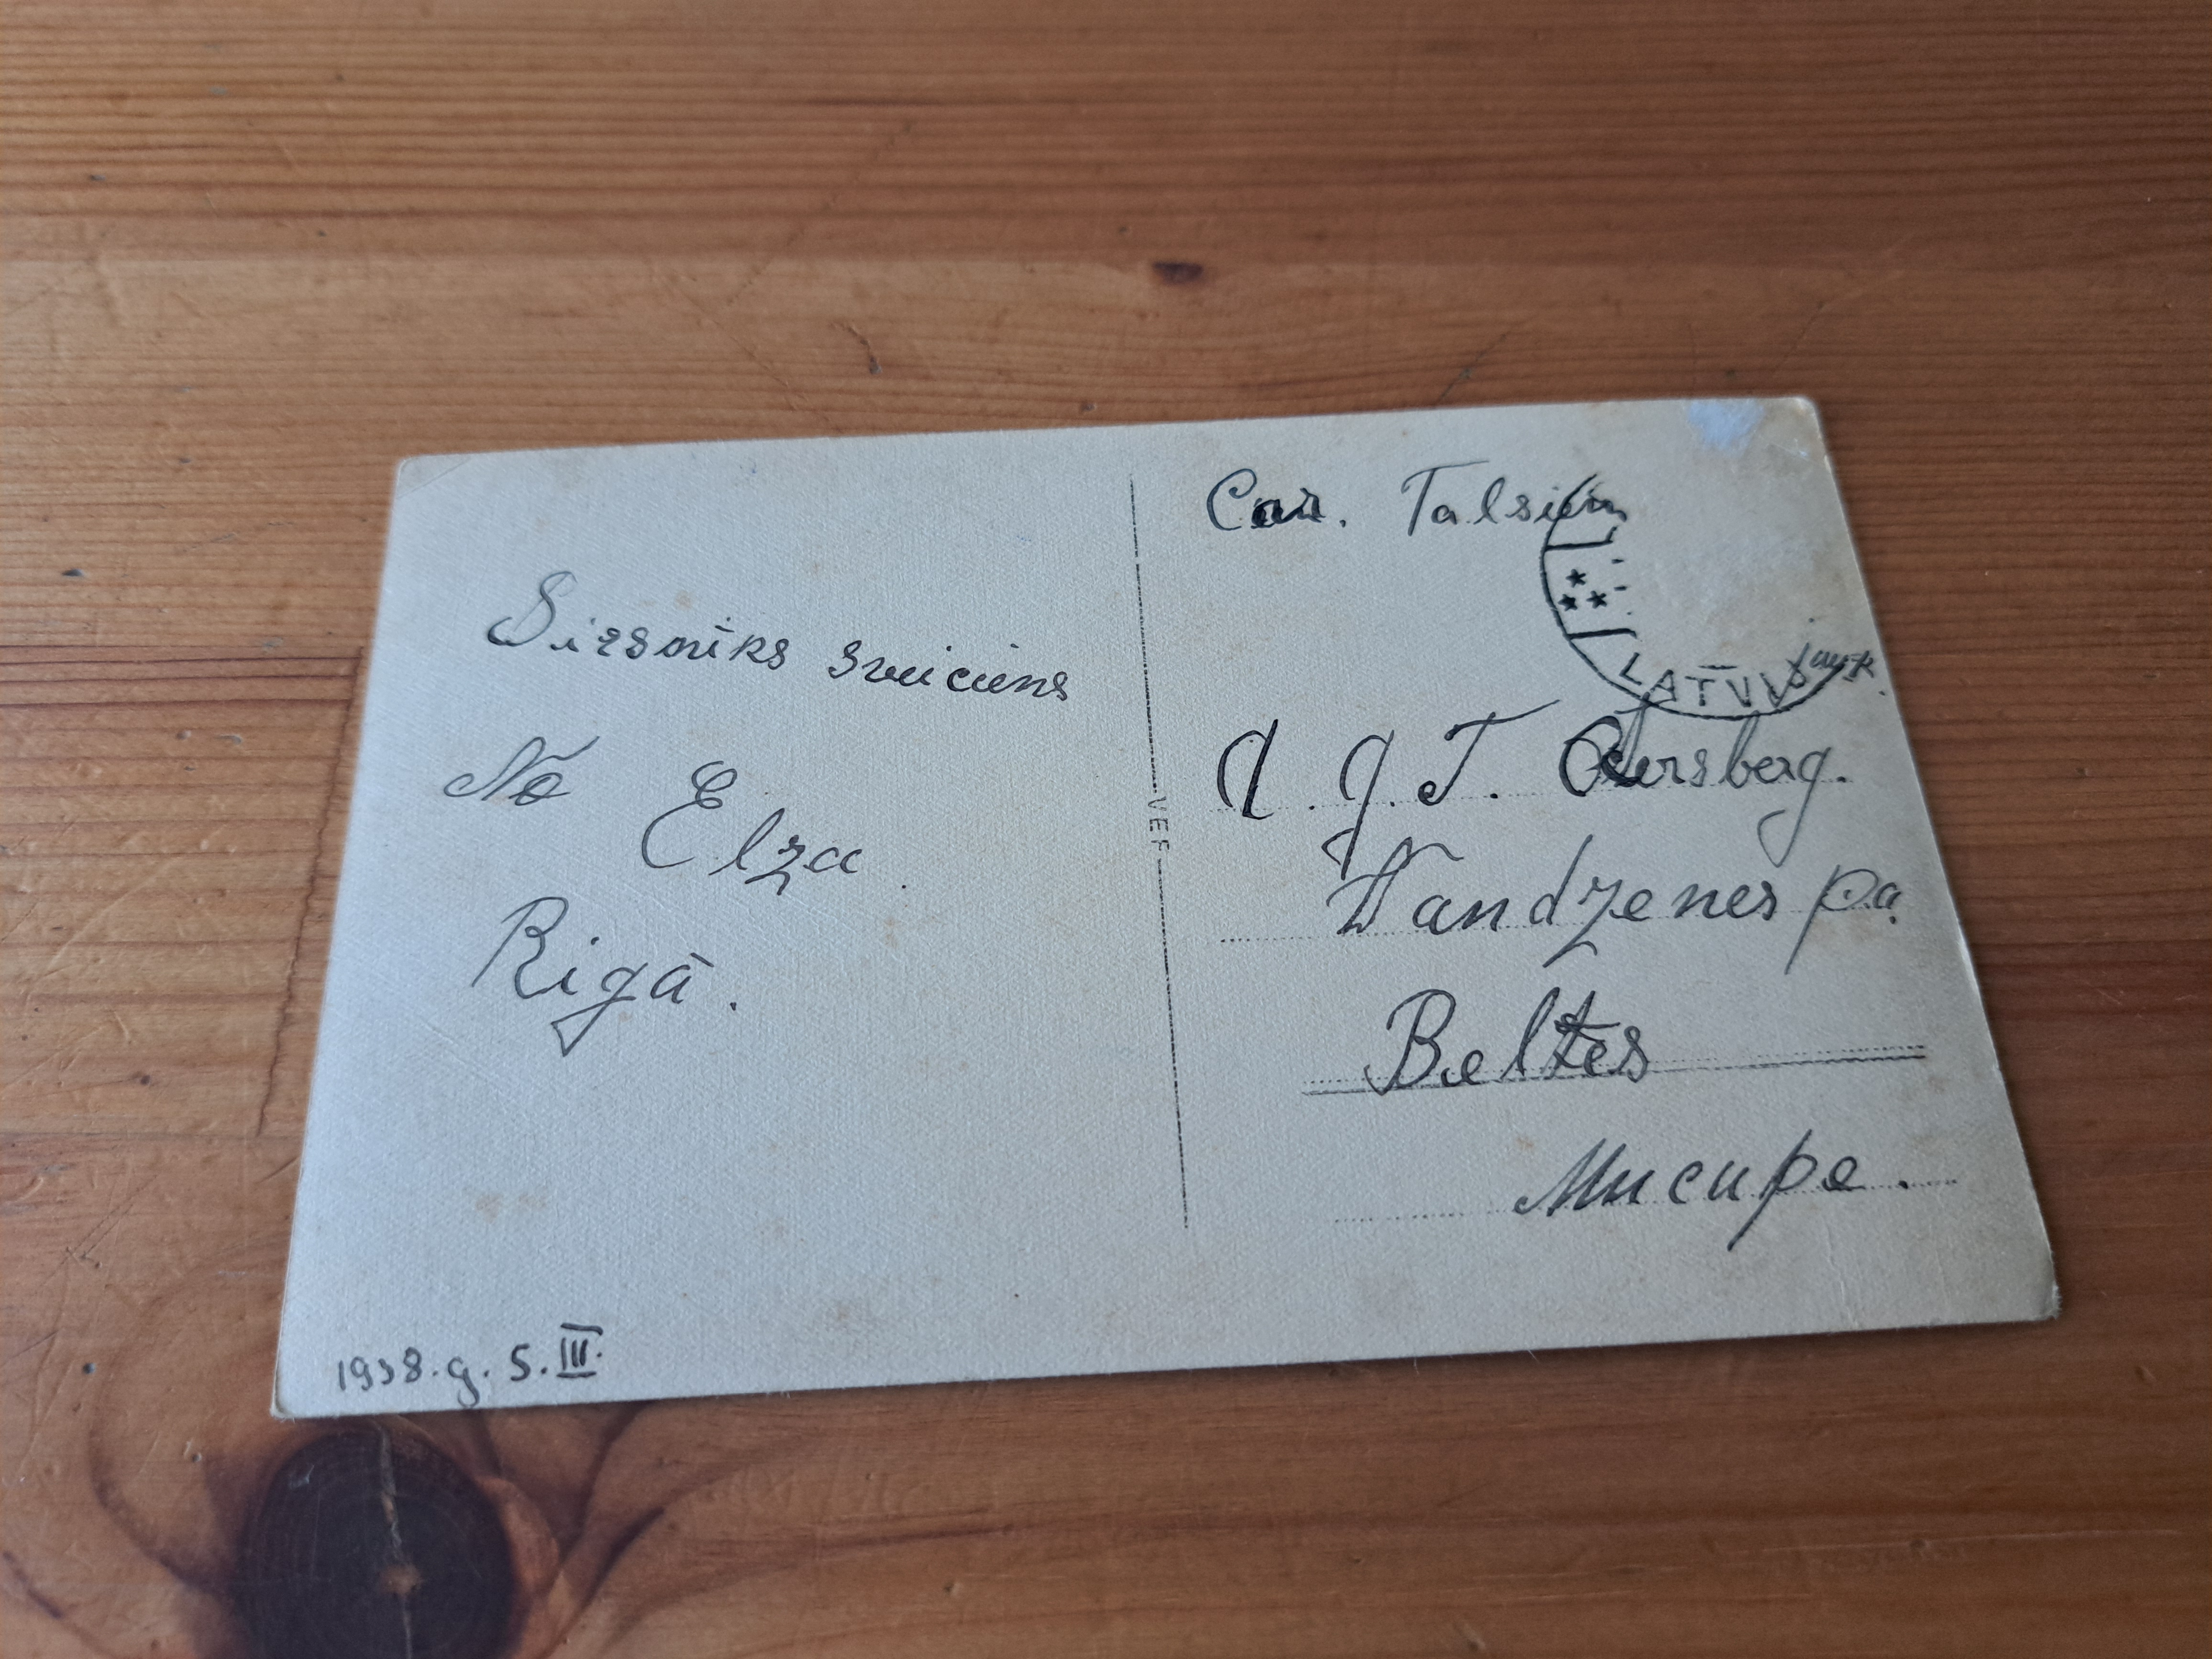 Sirsnīks sveiciens
No Elza
Rigā.
1938.g. 5.III.
VEF
Caur. Talsiem
LATVIJ
A. g. T. Aursberg.
Vandzenes pa.
Beltes
Mucupe.